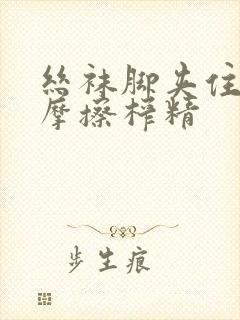 丝袜脚夹住
摩擦榨精
步生痕